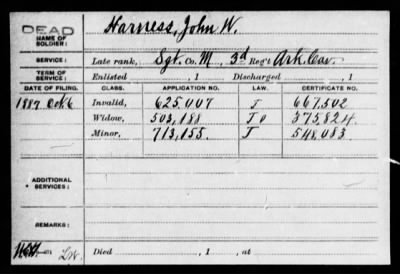 DEAD
NAME OF SOLDIER: Harness, John W.
SERVICE: Late rank, Sgt. Co. M, 3d Reg't Ark. Cav.
TERM OF SERVICE: Enlisted , 1 Discharged , 1
DATE OF FILING. CLASS. APPLICATION NO. LAW. CERTIFICATE NO.
1887 Oct 6 Invalid, 625,007 J 667,502
Widow, 503,188 J O 375,824
Minor, 713,155 J 548,083
ADDITIONAL SERVICES:
REMARKS:
Died , 1 , at